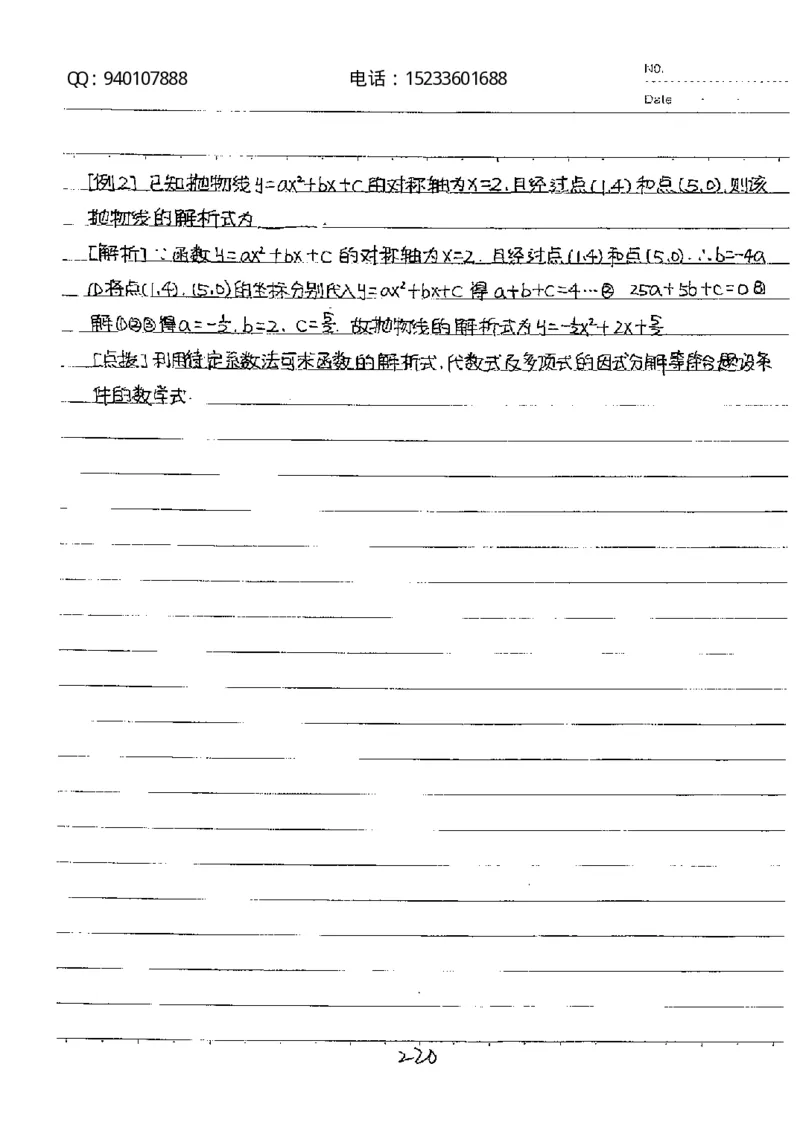 QQ：940107888 电话：15233601688 NO.
Date
[例2] 已知抛物线y=ax²+bx+c的对称轴为x=2,且经过点(1,4)和点(5,0),则该
抛物线的解析式为______.
[解析]∵函数y=ax²+bx+c的对称轴为x=2.且经过点(1,4)和点(5,0).∴b=-4a
①将点(1,4).(5,0)的坐标分别代入y=ax²+bx+c 得 a+b+c=4…② 25a+5b+c=0③
解①②③得a=-½,b=2,c=5/2.故抛物线的解析式为y=-½x²+2x+5/2
[点拨]利用待定系数法可求函数的解析式,代数式及多项式的因式分解等符合题设条
件的数学式.
220